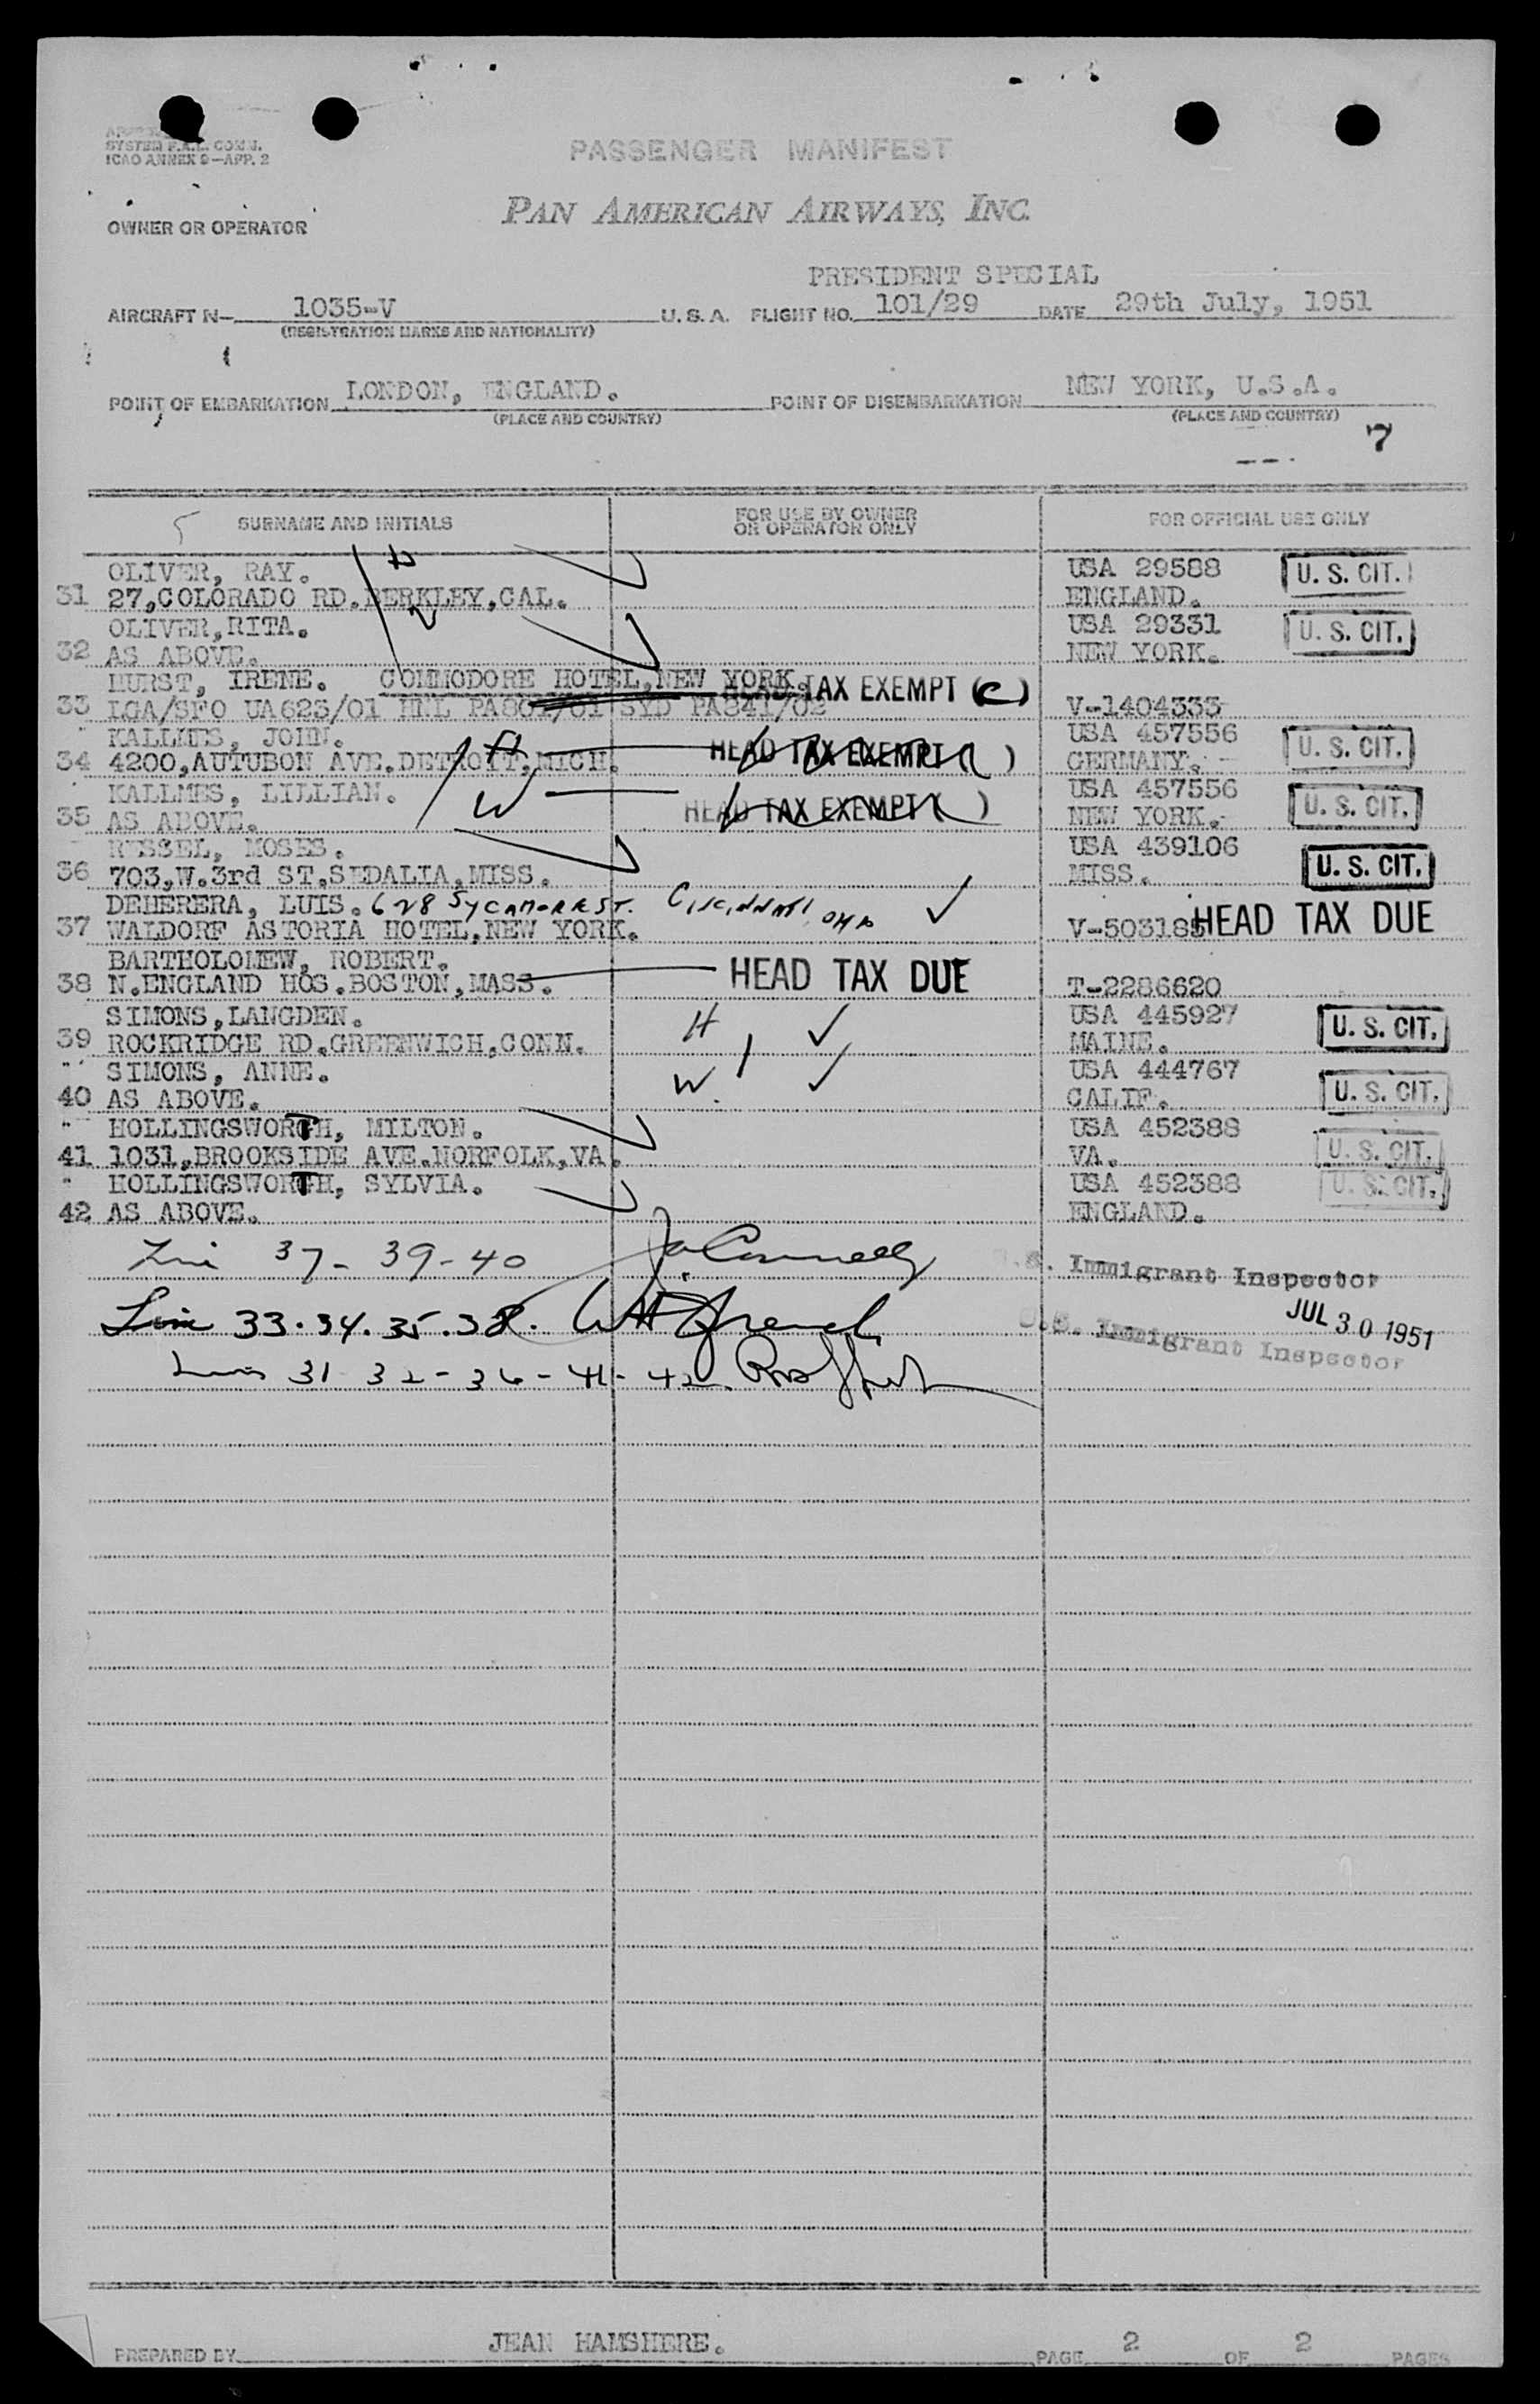 SYSTEM F.A.L. COMM.
ICAO ANNEX 9-APP. 2
PASSENGER MANIFEST
OWNER OR OPERATOR
PAN AMERICAN AIRWAYS, INC.
PRESIDENT SPECIAL
AIRCRAFT N- 1035-V U.S.A. FLIGHT NO. 101/29 DATE 29th July, 1951
(REGISTRATION MARKS AND NATIONALITY)
POINT OF EMBARKATION LONDON, ENGLAND. POINT OF DISEMBARKATION NEW YORK, U.S.A.
(PLACE AND COUNTRY) (PLACE AND COUNTRY)
7
5 SURNAME AND INITIALS FOR USE BY OWNER OR OPERATOR ONLY FOR OFFICIAL USE ONLY
OLIVER, RAY. USA 29588 U. S. CIT.
31 27,COLORADO RD.BERKLEY,CAL. ENGLAND.
OLIVER,RITA. USA 29331 U. S. CIT.
32 AS ABOVE. NEW YORK.
HURST, IRENE. COMMODORE HOTEL,NEW YORK. HEAD TAX EXEMPT (C)
33 LGA/SFO UA623/01 HNL PA801/01 SYD PA841/02 V-1404333
KALLMES, JOHN. USA 457556 U. S. CIT.
34 4200,AUTUBON AVE.DETROIT,MICH. H HEAD TAX EXEMPT ( ) GERMANY.
KALLMES, LILLIAN. W HEAD TAX EXEMPT ( ) USA 457556 U. S. CIT.
35 AS ABOVE. NEW YORK.
RUSSEL, MOSES. USA 439106 U. S. CIT.
36 703,W.3rd ST.SEDALIA,MISS. MISS.
DEHERERA, LUIS. 628 SYCAMORE ST. Cincinnati, OHIO ✓
37 WALDORF ASTORIA HOTEL,NEW YORK. V-503185 HEAD TAX DUE
BARTHOLOMEW, ROBERT. HEAD TAX DUE
38 N.ENGLAND HOS.BOSTON,MASS. T-2286620
SIMONS,LANGDEN. H ✓ USA 445927 U. S. CIT.
39 ROCKRIDGE RD.GREENWICH,CONN. MAINE.
SIMONS, ANNE. W. ✓ USA 444767 U. S. CIT.
40 AS ABOVE. CALIF.
HOLLINGSWORTH, MILTON. USA 452388 U. S. CIT.
41 1031,BROOKSIDE AVE.NORFOLK,VA. VA.
HOLLINGSWORTH, SYLVIA. USA 452388 U. S. CIT.
42 AS ABOVE. ENGLAND.
37-39-40 U.S. Immigrant Inspector
JUL 30 1951
Line 33.34.35.38. U.S. Immigrant Inspector
Lines 31 32-36-41-42.
PREPARED BY JEAN HAMSHERE. PAGE 2 OF 2 PAGES